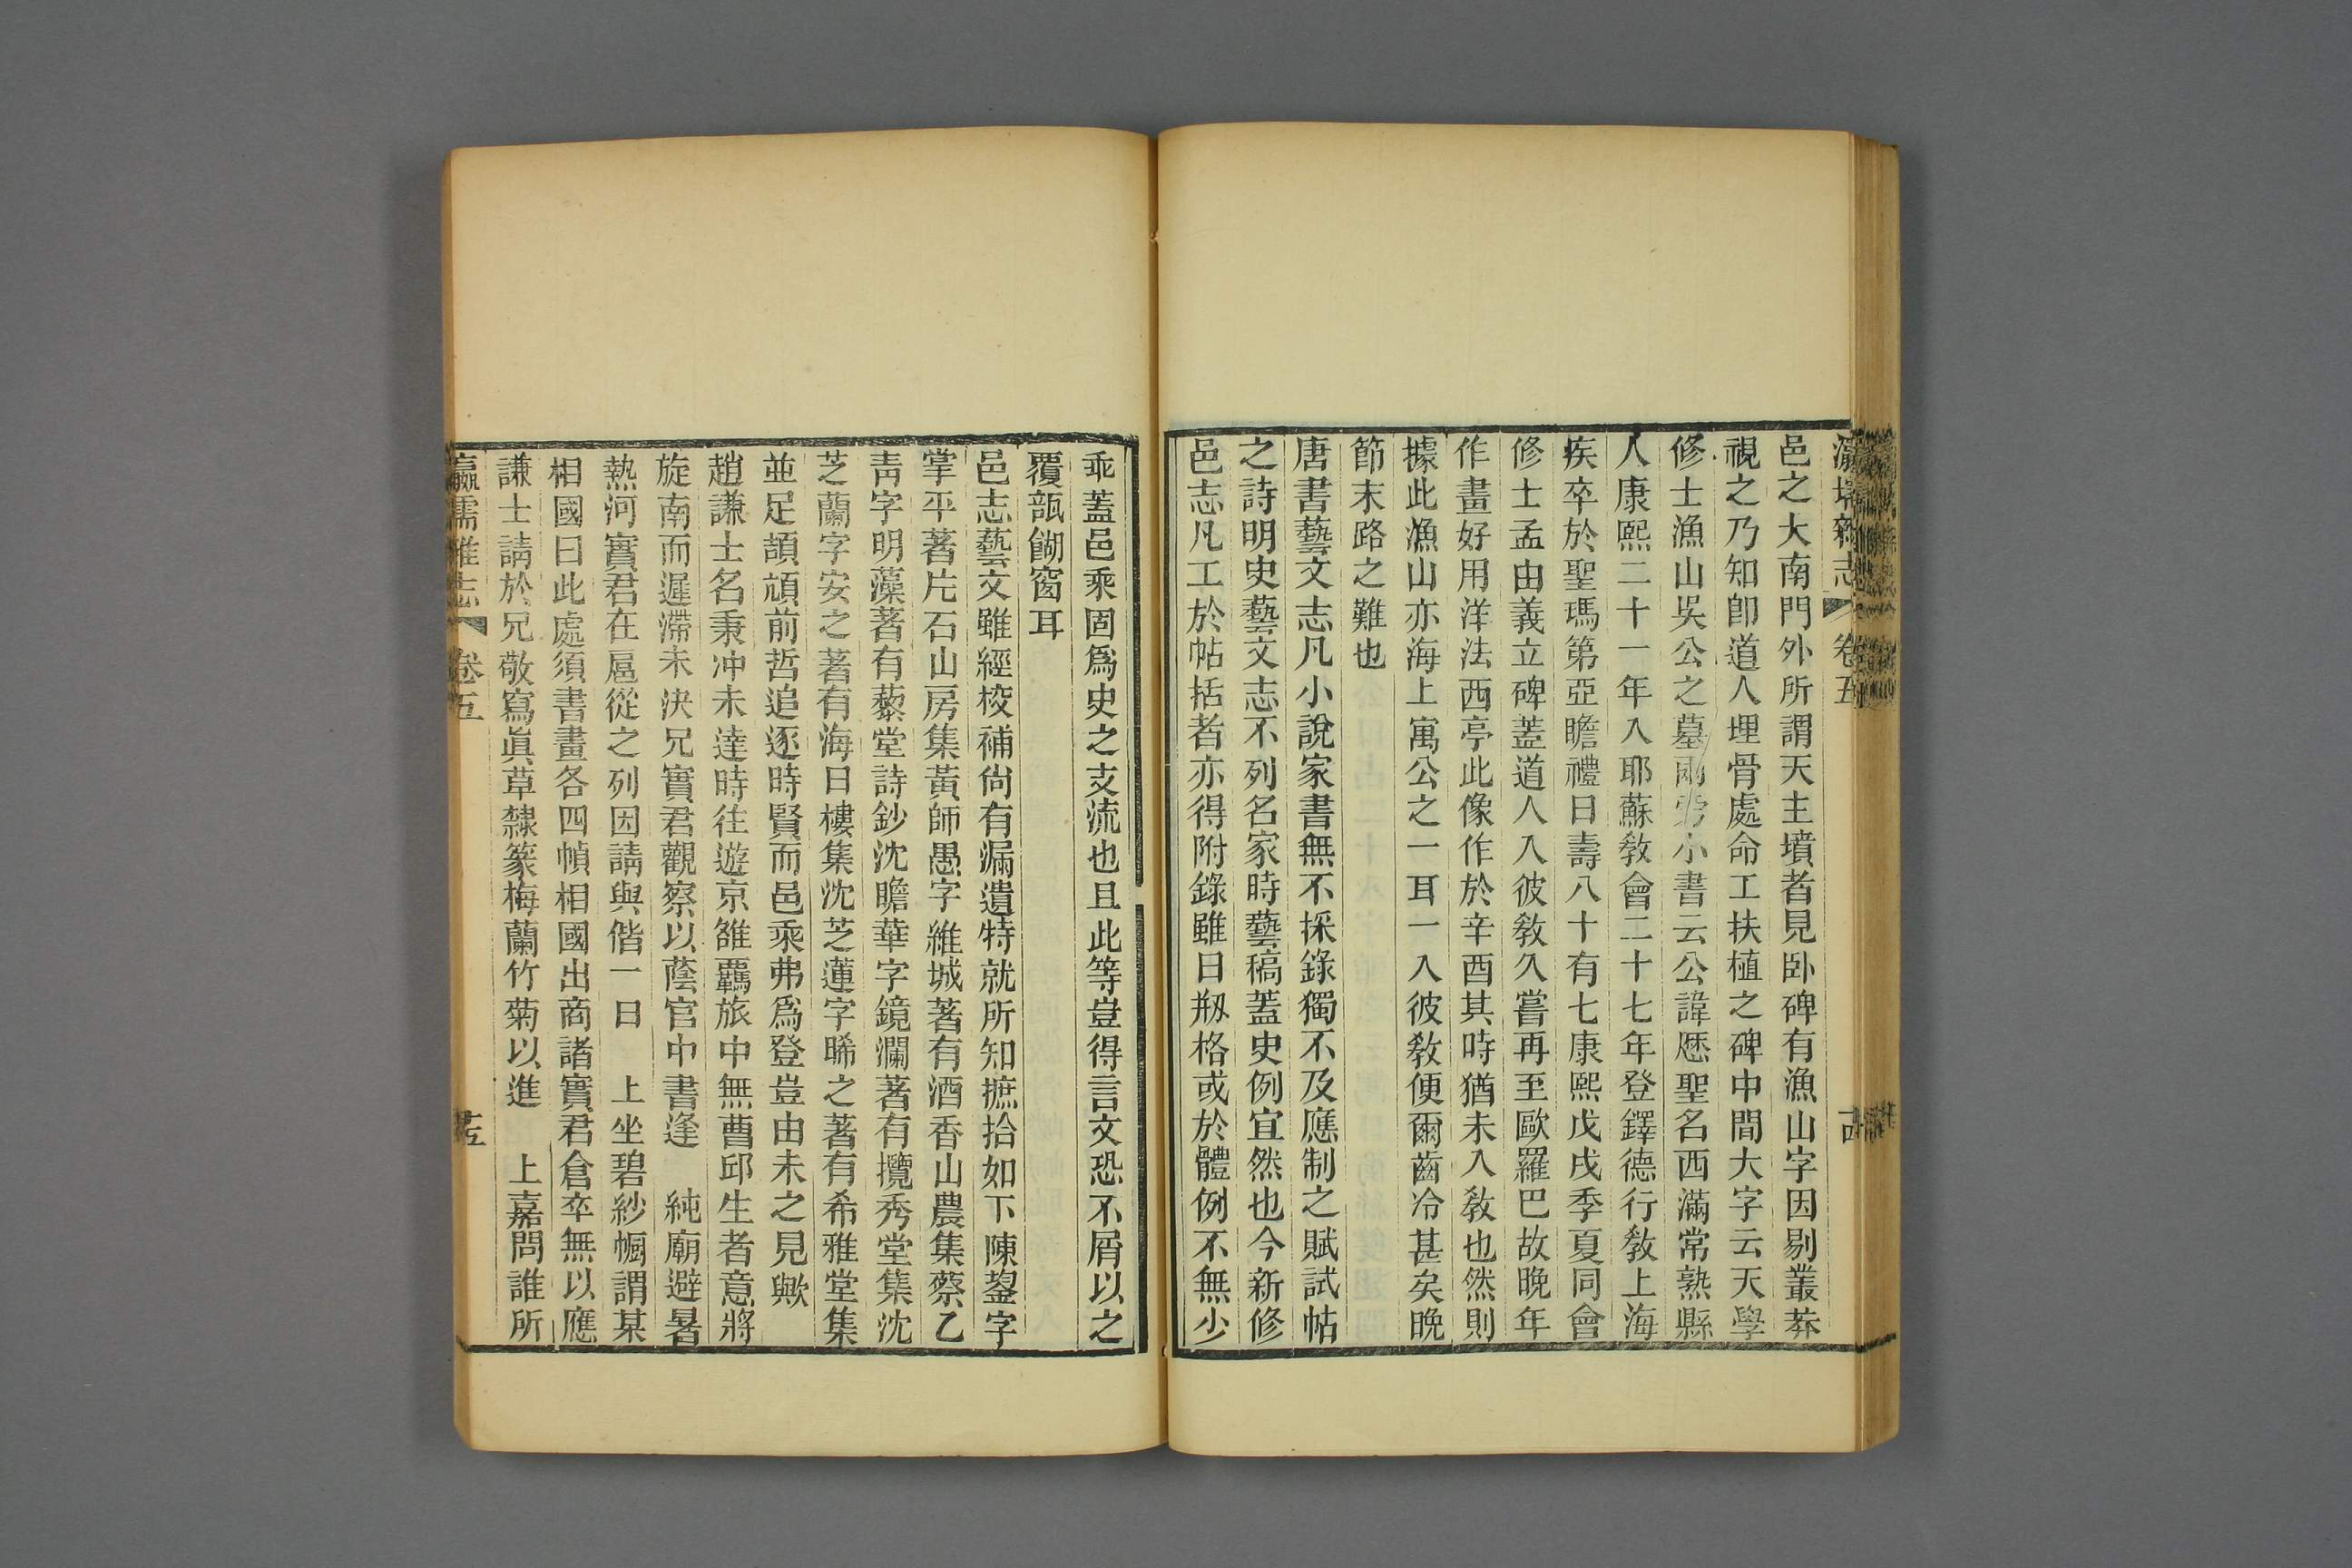 瀛壖雜志 卷五 十四
邑之大南門外所謂天主墳者見卧碑有漁山字因剔叢莽
視之乃知卽道人埋骨處命工扶植之碑中間大字云天學
修士漁山吳公之墓兩旁小書云公諱歷聖名西滿常熟縣
人康熙二十一年入耶蘇敎會二十七年登鐸德行敎上海
疾卒於聖瑪第亞瞻禮日壽八十有七康熙戊戌季夏同會
修士孟由義立碑蓋道人入彼敎久嘗再至歐羅巴故晚年
作畫好用洋法西亭此像作於辛酉其時猶未入敎也然則
據此漁山亦海上寓公之一耳一入彼敎便爾齒冷甚矣晚
節末路之難也
唐書藝文志凡小說家書無不採錄獨不及應制之賦試帖
之詩明史藝文志不列名家時藝稿蓋史例宜然也今新修
邑志凡工於帖括者亦得附錄雖日剏格或於體例不無少
乖蓋邑乘固爲史之支流也且此等豈得言文恐不屑以之
覆瓿餬窗耳
邑志藝文雖經校補尙有漏遺特就所知摭拾如下陳鋆字
掌平著片石山房集黃師愚字維城著有酒香山農集蔡乙
靑字明藻著有藜堂詩鈔沈瞻華字鏡瀾著有攬秀堂集沈
芝蘭字安之著有海日樓集沈芝蓮字晞之著有希雅堂集
並足頡頏前哲追逐時賢而邑乘弗爲登豈由未之見歟
趙謙士名秉冲未達時往遊京雒覊旅中無曹邱生者意將
旋南而遲滯未決兄實君觀察以蔭官中書逢 純廟避暑
熱河實君在扈從之列因請與偕一日 上坐碧紗幮謂某
相國曰此處須書畫各四幀相國出商諸實君倉卒無以應
謙士請於兄敬寫眞草隸篆梅蘭竹菊以進 上嘉問誰所
瀛壖雜志 卷五 十五